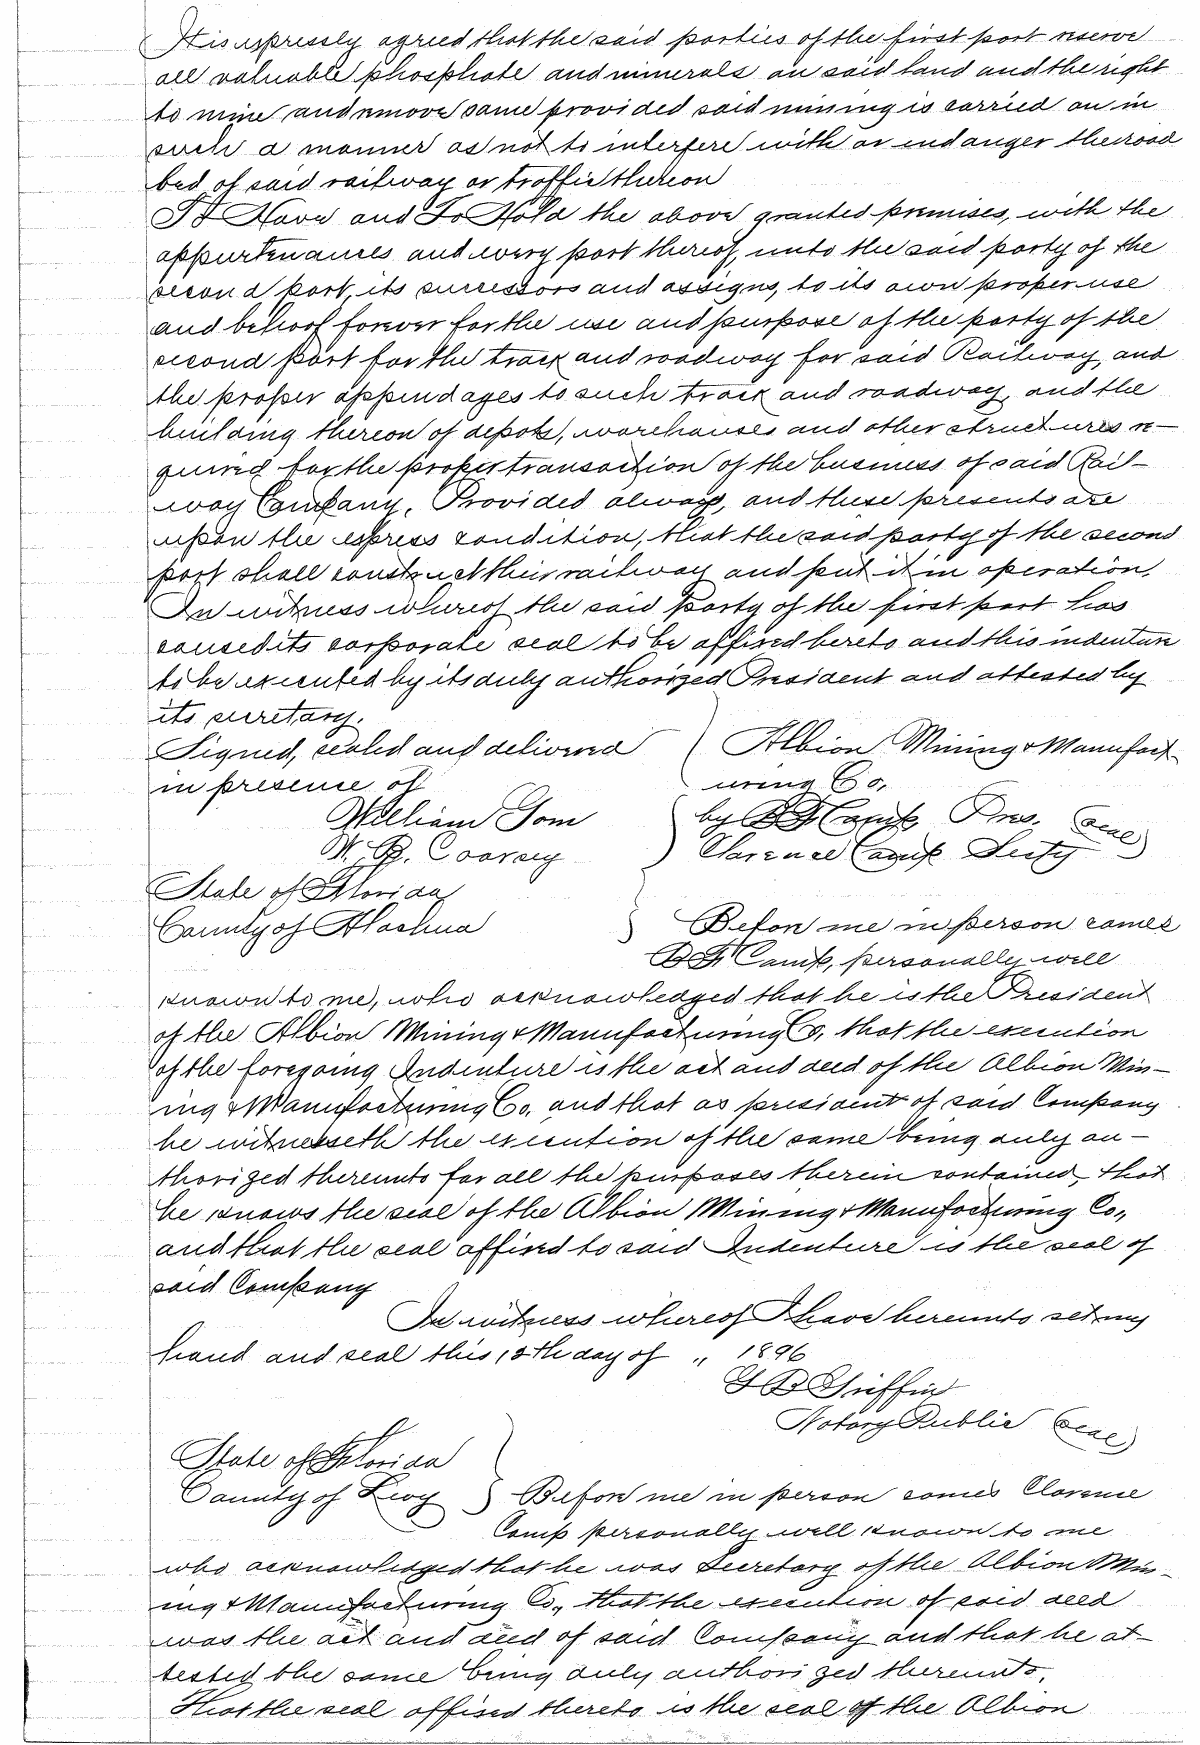 It is expressly agreed that the said parties of the first part reserve
all valuable phosphate and minerals on said land and the right
to mine and remove same provided said mining is carried on in
such a manner as not to interfere with or endanger the road
bed of said railway or traffic thereon
To Have and To Hold the above granted premises, with the
appurtenances and every part thereof, unto the said party of the
second part, its successors and assigns, to its own proper use
and behoof forever for the use and purpose of the party of the
second part for the track and roadway for said Railway, and
the proper appendages to such track and roadway, and the
building thereon of depots, warehouses and other structures re-
quired for the proper transaction of the business of said Rail-
way Company, Provided always, and these presents are
upon the express condition, that the said party of the second
part shall construct their railway and put it in operation,
In witness whereof the said party of the first part has
caused its corporate seal to be affixed hereto and this indenture
to be executed by its duly authorized President and attested by
its secretary.
Signed, sealed and delivered ) Albion Mining & Manufact
in presence of ( uring Co,
William Tom ) by B F Camp Pres. (seal)
W. B. Coarsey ) Clarence Camp Secty
State of Florida
County of Alachua } Before me in person comes
B F Camp, personally well
known to me, who acknowledged that he is the President
of the Albion Mining & Manufacturing Co, that the execution
of the foregoing Indenture is the act and deed of the Albion Min-
ing & Manufacturing Co, and that as president of said Company
he witnesseth the execution of the same being duly au-
thorized thereunto for all the purposes therein contained, that
he knows the seal of the Albion Mining & Manufacturing Co.,
and that the seal affixed to said Indenture is the seal of
said Company
In witness whereof I have hereunto set my
hand and seal this day of " 1896
G B Griffin
Notary Public (seal)
State of Florida
County of Levy } Before me in person comes Clarence
Camp personally well known to me
who acknowledged that he was Secretary of the Albion Min-
ing & Manufacturing Co., that the execution of said deed
was the act and deed of said Company and that he at-
tested the same being duly authorized thereunto,
That the seal affixed thereto is the seal of the Albion